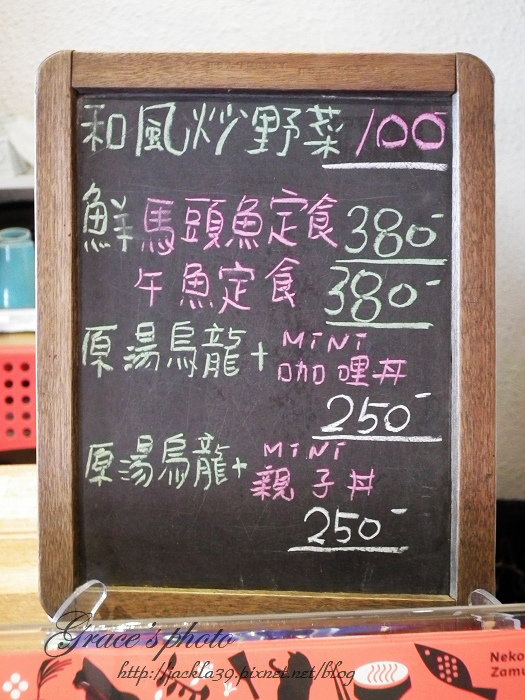 和風炒野菜 100-
鮮馬頭魚定食 380-
午魚定食 380-
原湯烏龍+MINI咖哩丼
250-
原湯烏龍+MINI親子丼
250-
Grace's photo
http://jackla39.pixnet.net/blog
Neko
Zam